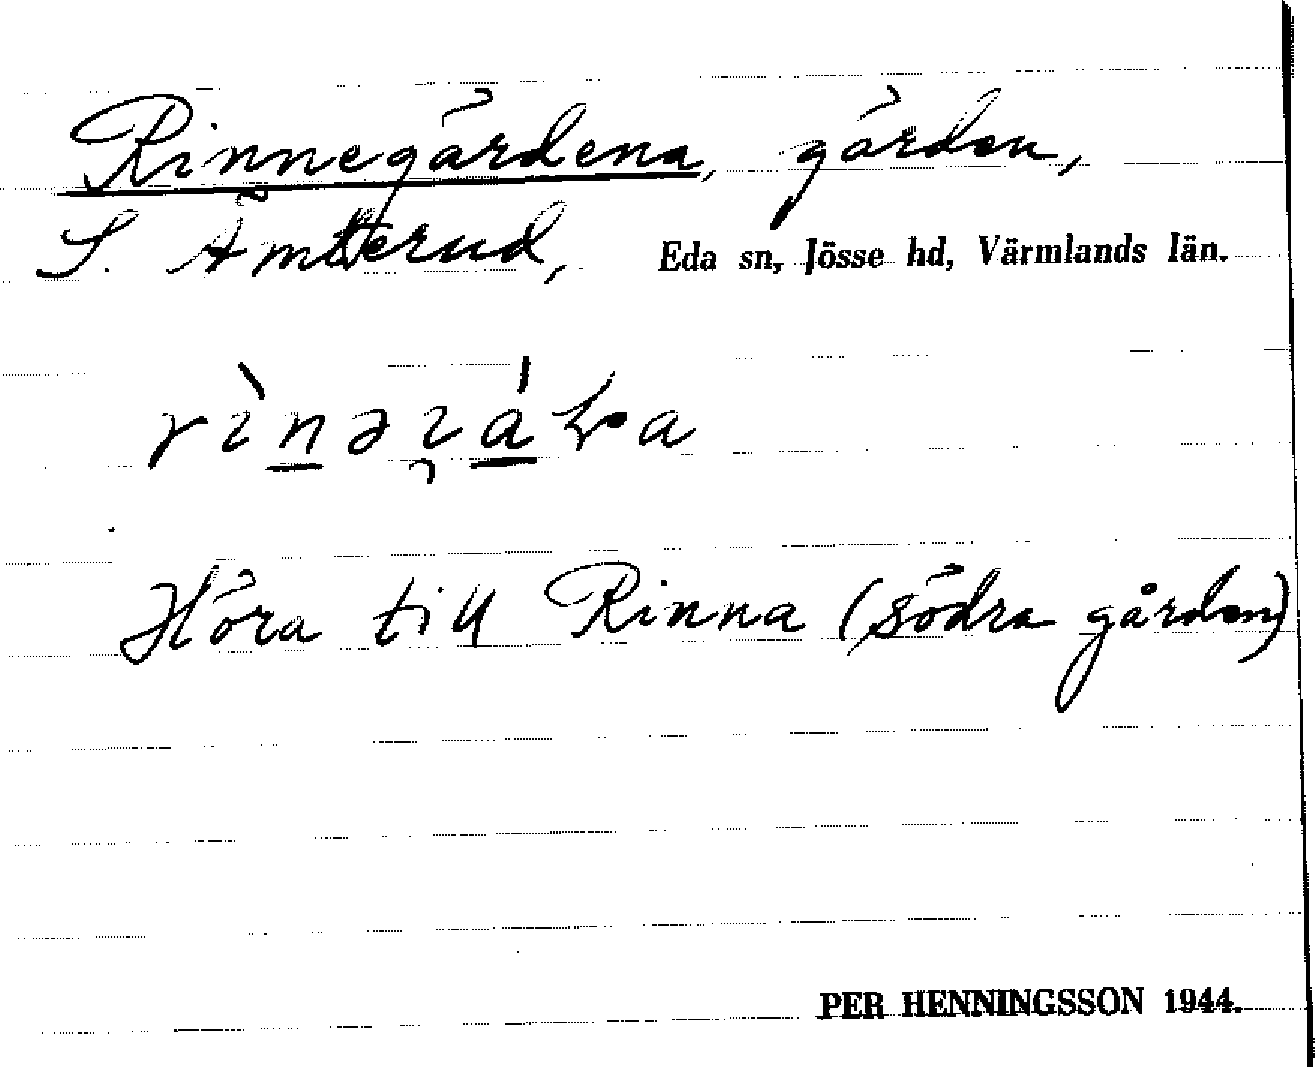 Rinnegärdena, gärden,
S. Ämterud, Eda sn, Jösse hd, Värmlands län.
Höra till Rinna (södra gården)
PER HENNINGSSON 1944.